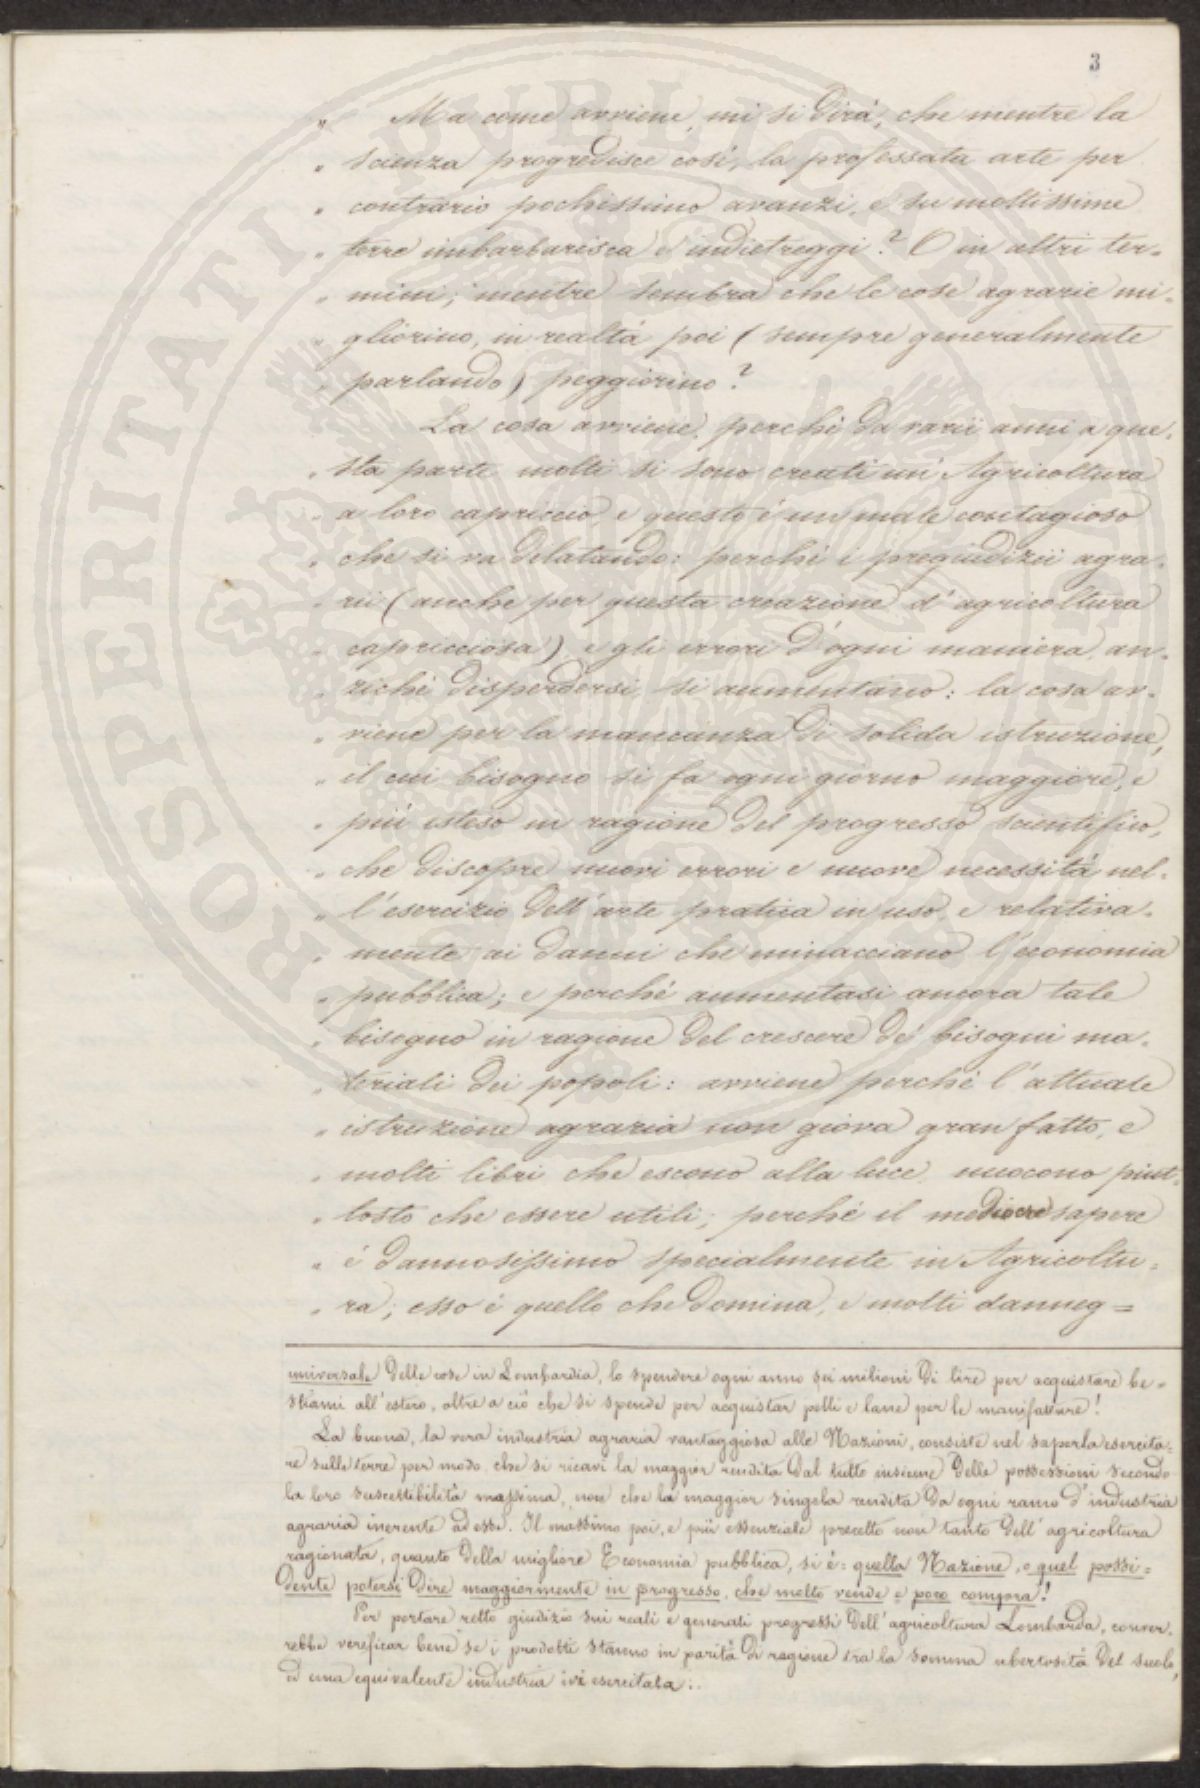 3
" Ma come avviene, mi si dirà, che mentre la
" scienza progredisce così, la professata arte per
" contrario pochissimo avanzi, e su moltissime
" terre imbarbarisca e indietreggi? O in altri ter-
" mini; mentre sembra che le cose agrarie mi-
" gliorino, in realtà poi (sempre generalmente
" parlando) peggiorino?
La cosa avviene, perchè da varii anni a que-
" sta parte molti si sono creati un' Agricoltura
" a loro capriccio, e questo è un male contagioso
" che si va dilatando: perchè i pregiudizii agra-
" rii (anche per questa creazione d'agricoltura
" capricciosa), e gli errori d'ogni maniera, an-
" zichè disperdersi, si aumentano: la cosa av-
" viene per la mancanza di solida istruzione,
" il cui bisogno si fa ogni giorno maggiore, e
" più esteso in ragione del progresso scientifico,
" che discopre nuovi errori e nuove necessità nel-
" l'esercizio dell'arte pratica in uso, e relativa-
" mente ai danni che minacciano l'economia
" pubblica; e perchè aumentasi ancora tale
" bisogno in ragione del crescere de' bisogni ma-
" teriali dei popoli: avviene perchè l'attuale
" istruzione agraria non giova gran fatto, e
" molti libri che escono alla luce nuocono piut-
" tosto che essere utili; perchè il mediocre sapere
" è dannosissimo specialmente in Agricoltu-
" ra; esso è quello che domina, e molti danneg=
universale delle cose in Lombardia, lo spendere ogni anno sei milioni di lire per acquistare be=
stiami all'estero, oltre a ciò che si spende per acquistar pelli e lane per le manifatture!
La buona, la vera industria agraria vantaggiosa alle Nazioni, consiste nel saperla esercita=
re sulle terre per modo, che si ricavi la maggior rendita dal tutto insieme delle possessioni secondo
la loro suscettibilità massima, non che la maggior singola rendita da ogni ramo d'industria
agraria inerente ad esse. Il massimo poi, e più essenziale precetto non tanto dell'agricoltura
ragionata, quanto della migliore Economia pubblica, si è: quella Nazione, o quel possi=
dente potersi dire maggiormente in progresso, che molto vende e poco compra!
Per portare retto giudizio sui reali e generali progressi dell'agricoltura Lombarda, conver-
rebbe verificar bene se i prodotti stanno in parità di ragione tra la somma ubertosità del suolo,
ed una equivalente industria ivi esercitata:.
PROSPERITATI PUBLICAE